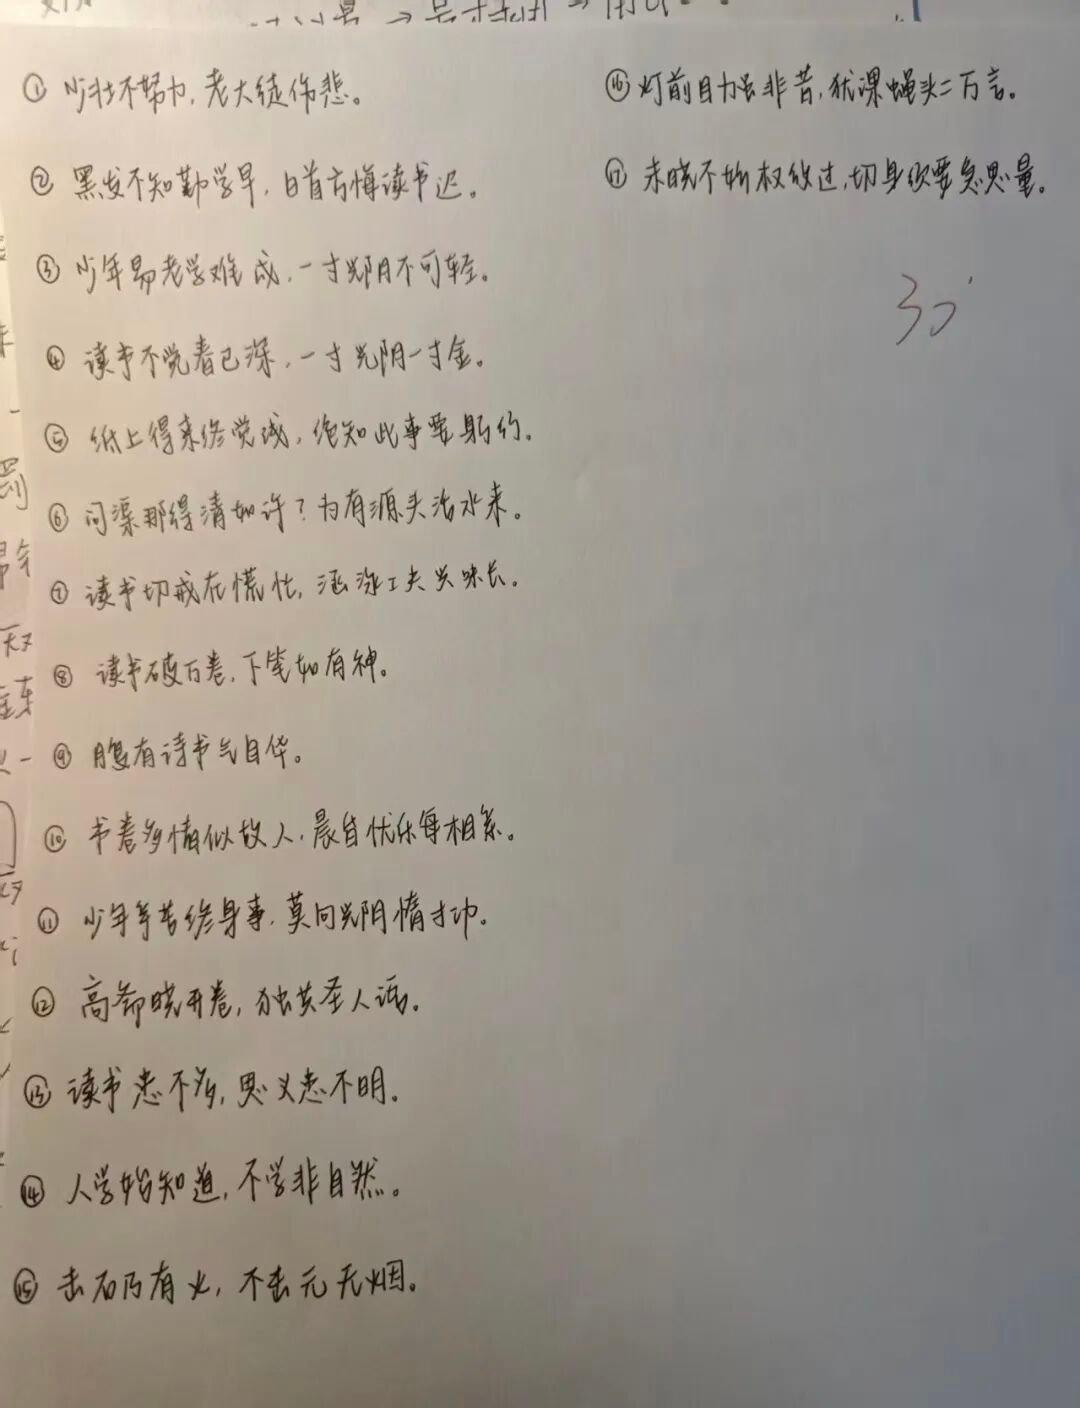 ① 少壮不努力，老大徒伤悲。
② 黑发不知勤学早，白首方悔读书迟。
③ 少年易老学难成，一寸光阴不可轻。
④ 读书不觉春已深，一寸光阴一寸金。
⑤ 纸上得来终觉浅，绝知此事要躬行。
⑥ 问渠那得清如许？为有源头活水来。
⑦ 读书切戒在慌忙，涵泳工夫兴味长。
⑧ 读书破万卷，下笔如有神。
⑨ 腹有诗书气自华。
⑩ 书卷多情似故人，晨昏忧乐每相亲。
⑪ 少年辛苦终身事，莫向光阴惰寸功。
⑫ 高斋晓开卷，独共圣人语。
⑬ 读书患不多，思义患不明。
⑭ 人学始知道，不学非自然。
⑮ 击石乃有火，不击元无烟。
⑯ 灯前目力虽非昔，犹课蝇头二万言。
⑰ 未晓不妨权放过，切身须要急思量。